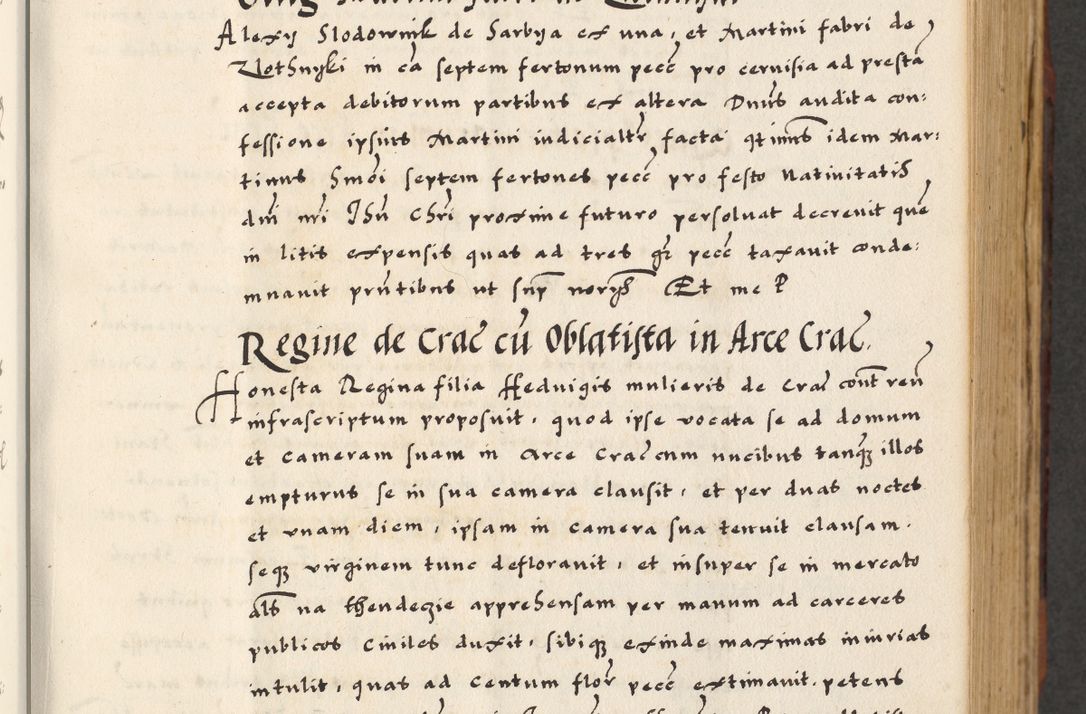 Alexy Slodownik de Sarbya ex una, et Martini fabri de
Zlothnyki in ca septem fertonum pecc pro cervisia ad presta
accepta debitorum partibus ex altera Dnus audita con:
fessione ipsius Martini iudicialtr facta qtinus idem Mar:
tinus Smoi septem fertones pecc pro festo Nativitatis
dni nri Jhu Chri proxime futuro persoluat decrevit que
in litis expensis quas ad tres gr pecc taxavit conde:
mnavit prntibus ut snp Et me P
Regine de Crac cu Oblatista in Arce Crac.
Honesta Regina filia Heduigis mulieris de Crac cont reu
infrascriptum proposuit, quod ipse vocata se ad domum
et Cameram suam in Arce Crac cum nucibus tanq illos
empturus se in sua camera clausit, et per duas noctes
et unam diem, ipsam in camera sua tenuit clausam.
seq virginem tunc defloravit, et insuper se in mercato
als na thendeczie apprehensam per manum ad carceres
publicos Civiles duxit, sibiq exinde maximas iniurias
intulit, quas ad Centum flor pecc extimavit. petens